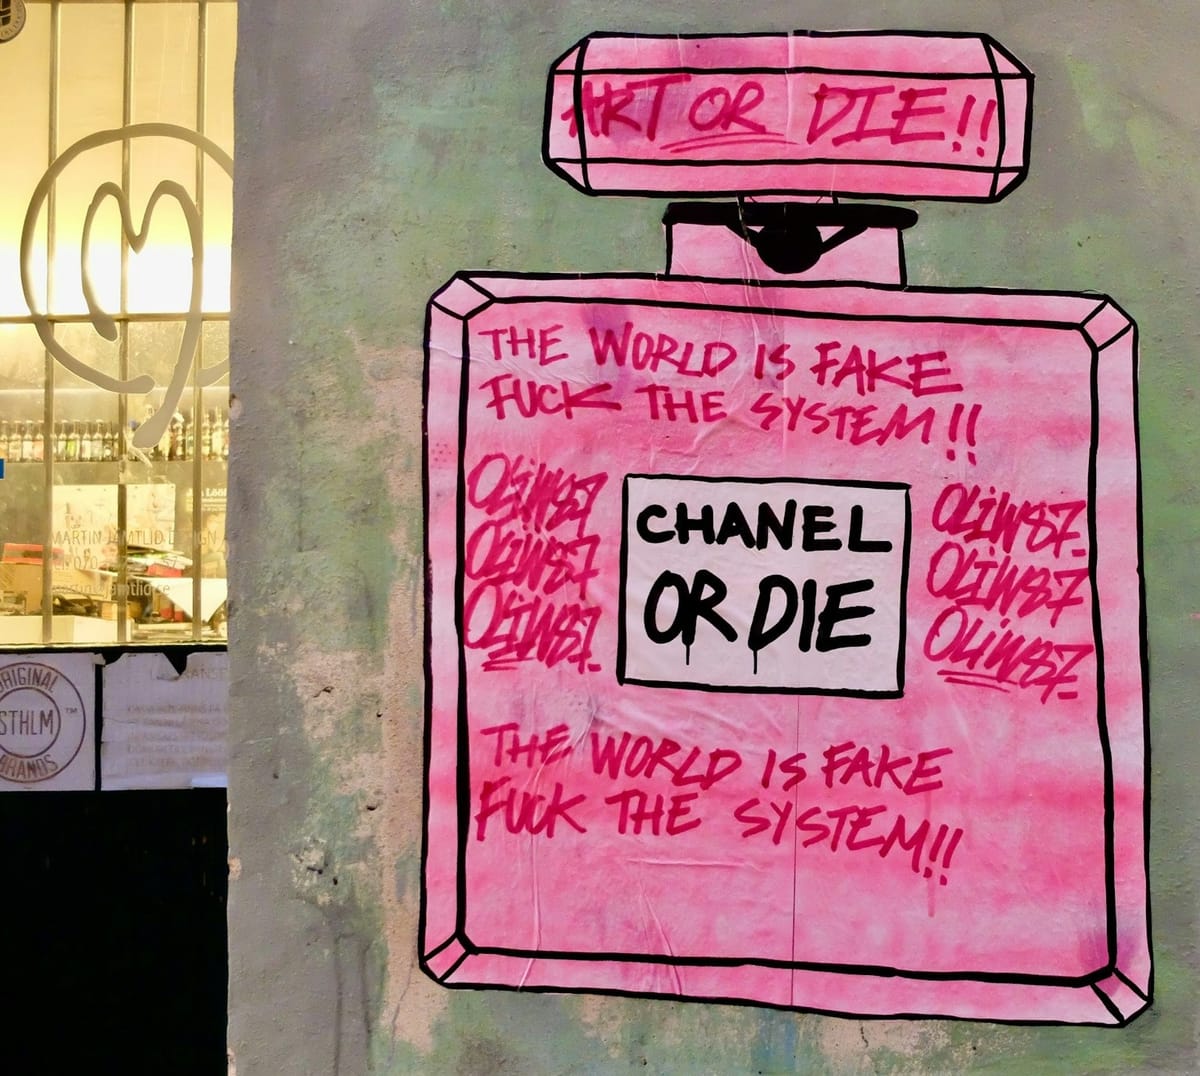 ART OR DIE!!
THE WORLD IS FAKE
FUCK THE SYSTEM!!
OLiW87
OLiW87
OLiW87
CHANEL
OR DIE
OLiW87
OLiW87
OLiW87
THE WORLD IS FAKE
FUCK THE SYSTEM!!
MARTIN JÄMTLID DESIGN
ORIGINAL
STHLM
BRANDS
TM